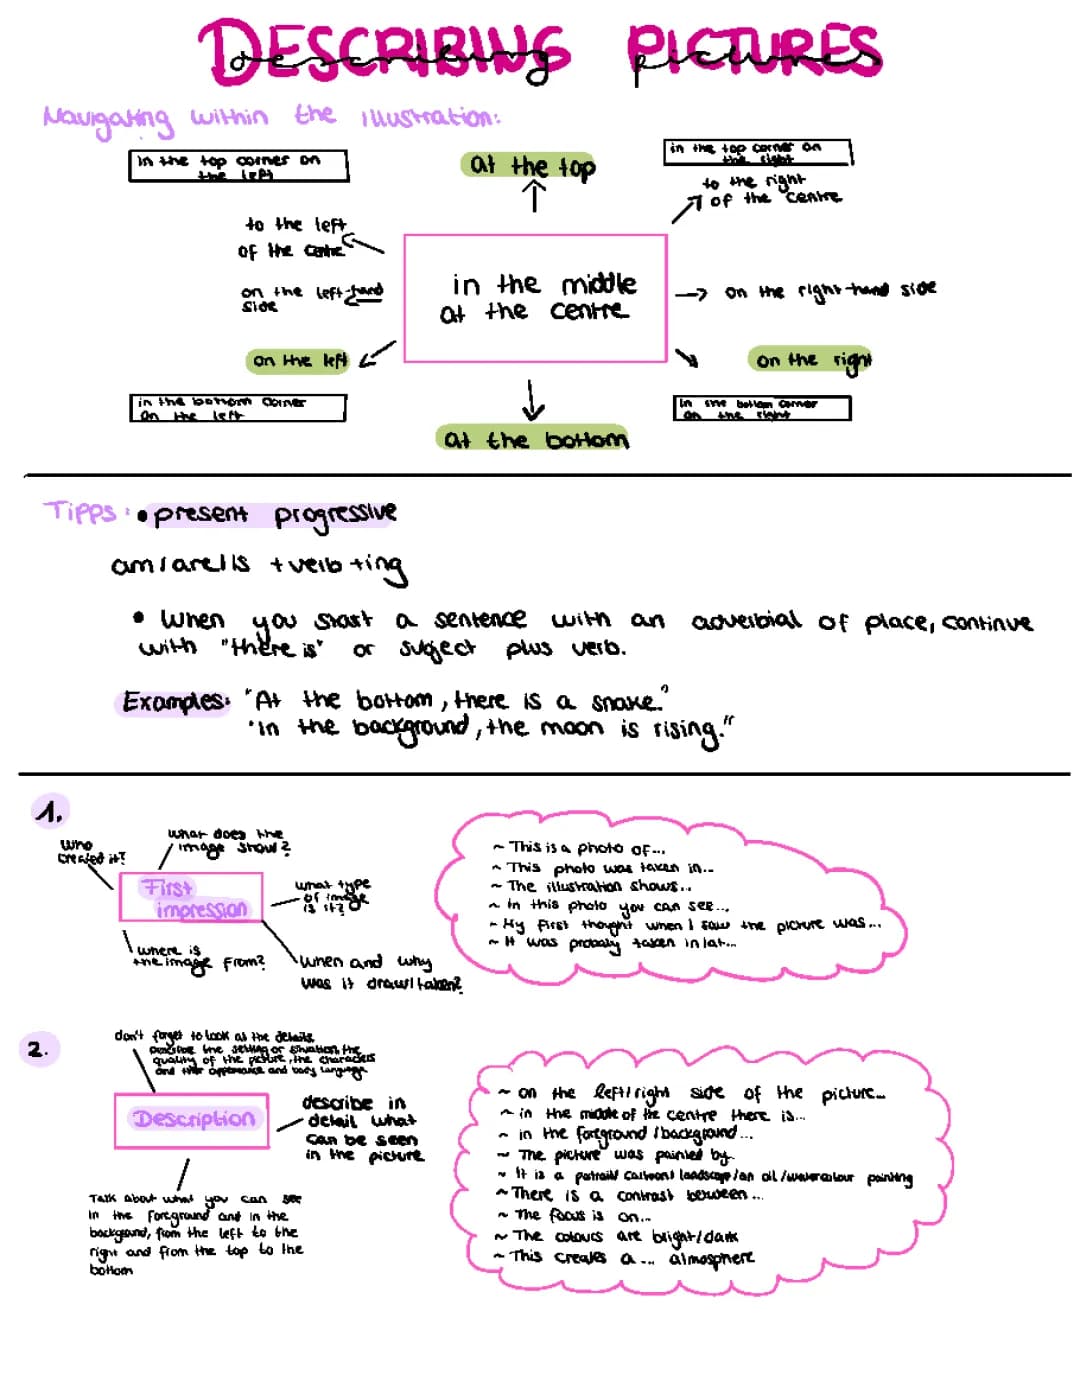 DESCRIBING PICTURES
describing pictures
Navigating within the illustration:
in the top corner on
the left
at the top
in the top corner on
the right
to the right
of the centre
to the left
of the centre
in the middle
at the centre
on the left-hand
side
on the right-hand side
on the left
on the right
in the bottom corner
on the left
in the bottom corner
on the right
at the bottom
Tipps: • present progressive
am/are/is + verb + ing
• When you start a sentence with an adverbial of place, continue
with "there is" or subject plus verb.
Examples: "At the bottom, there is a snake."
"In the background, the moon is rising."
1.
who
created it?
what does the
image show?
First
impression
what type
of image
is it?
where is
the image from?
When and why
was it drawn/taken?
~ This is a photo of...
~ This photo was taken in...
~ The illustration shows...
~ In this photo you can see...
~ My first thought when I saw the picture was...
~ It was probaly taken in/at...
2.
don't forget to look at the details,
describe the setting or situation, the
quality of the picture, the characters
and their appearance and body language
Description
describe in
detail what
can be seen
in the picture
Talk about what you can see
in the foreground and in the
background, from the left to the
right and from the top to the
bottom
~ on the left/right side of the picture...
~ in the middle of the centre there is...
~ in the foreground/background...
~ The picture was painted by...
~ It is a potrait/cartoon/landscape/an oil/watercolour painting
~ There is a contrast between...
~ The focus is on...
~ The colours are bright/dark
~ This creates a ... atmosphere